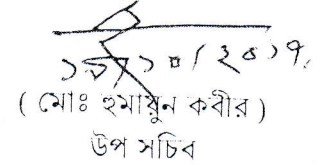 ১৯/১০/২০১৭
( মোঃ হুমায়ুন কবীর )
উপ সচিব